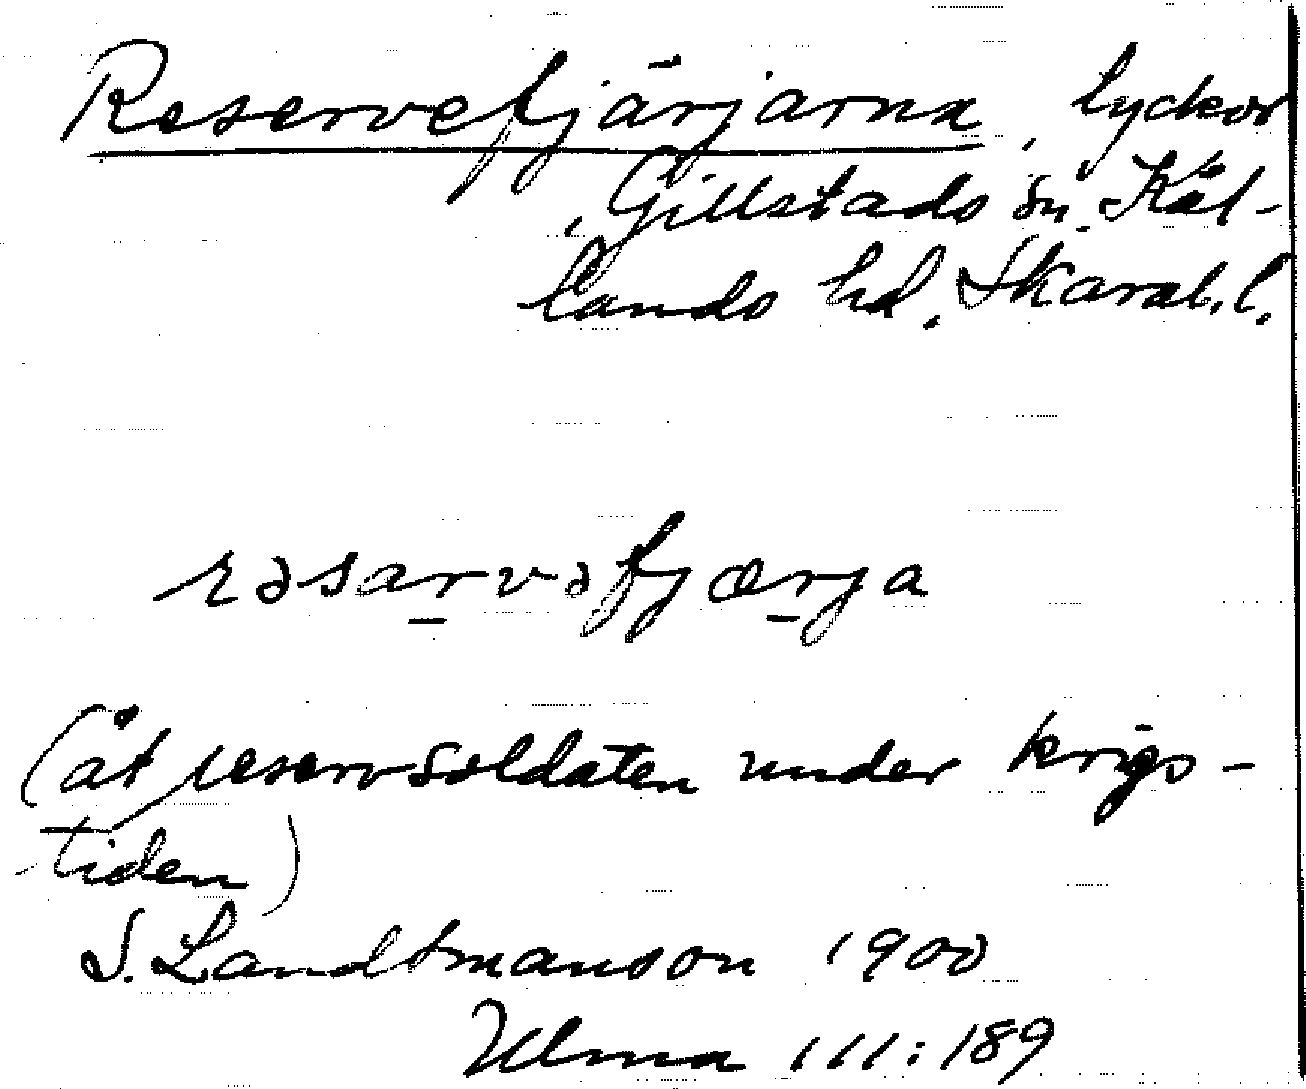 Reservefjärjarna, lyckor
, Gillstads sn. Kål-
lands hd. Skarab.l.
rəsarvəfjærja
(åt reservsoldaten under krigs-
tiden)
S. Landtmanson 1900
Ulma 111:189